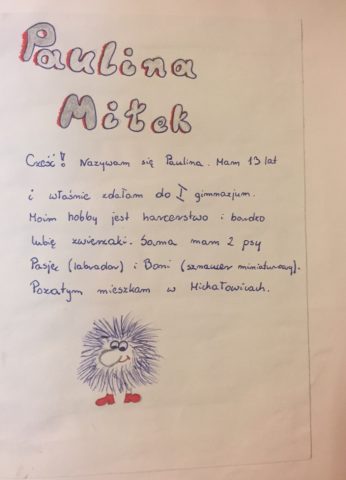 Paulina
Mitek
Cześć! Nazywam się Paulina. Mam 13 lat
i właśnie zdałam do I gimnazjum.
Moim hobby jest harcerstwo i bardzo
lubię zwierzaki. Sama mam 2 psy
Pasję (labrador) i Boni (sznaucer miniaturowy).
Pozatym mieszkam w Michałowicach.